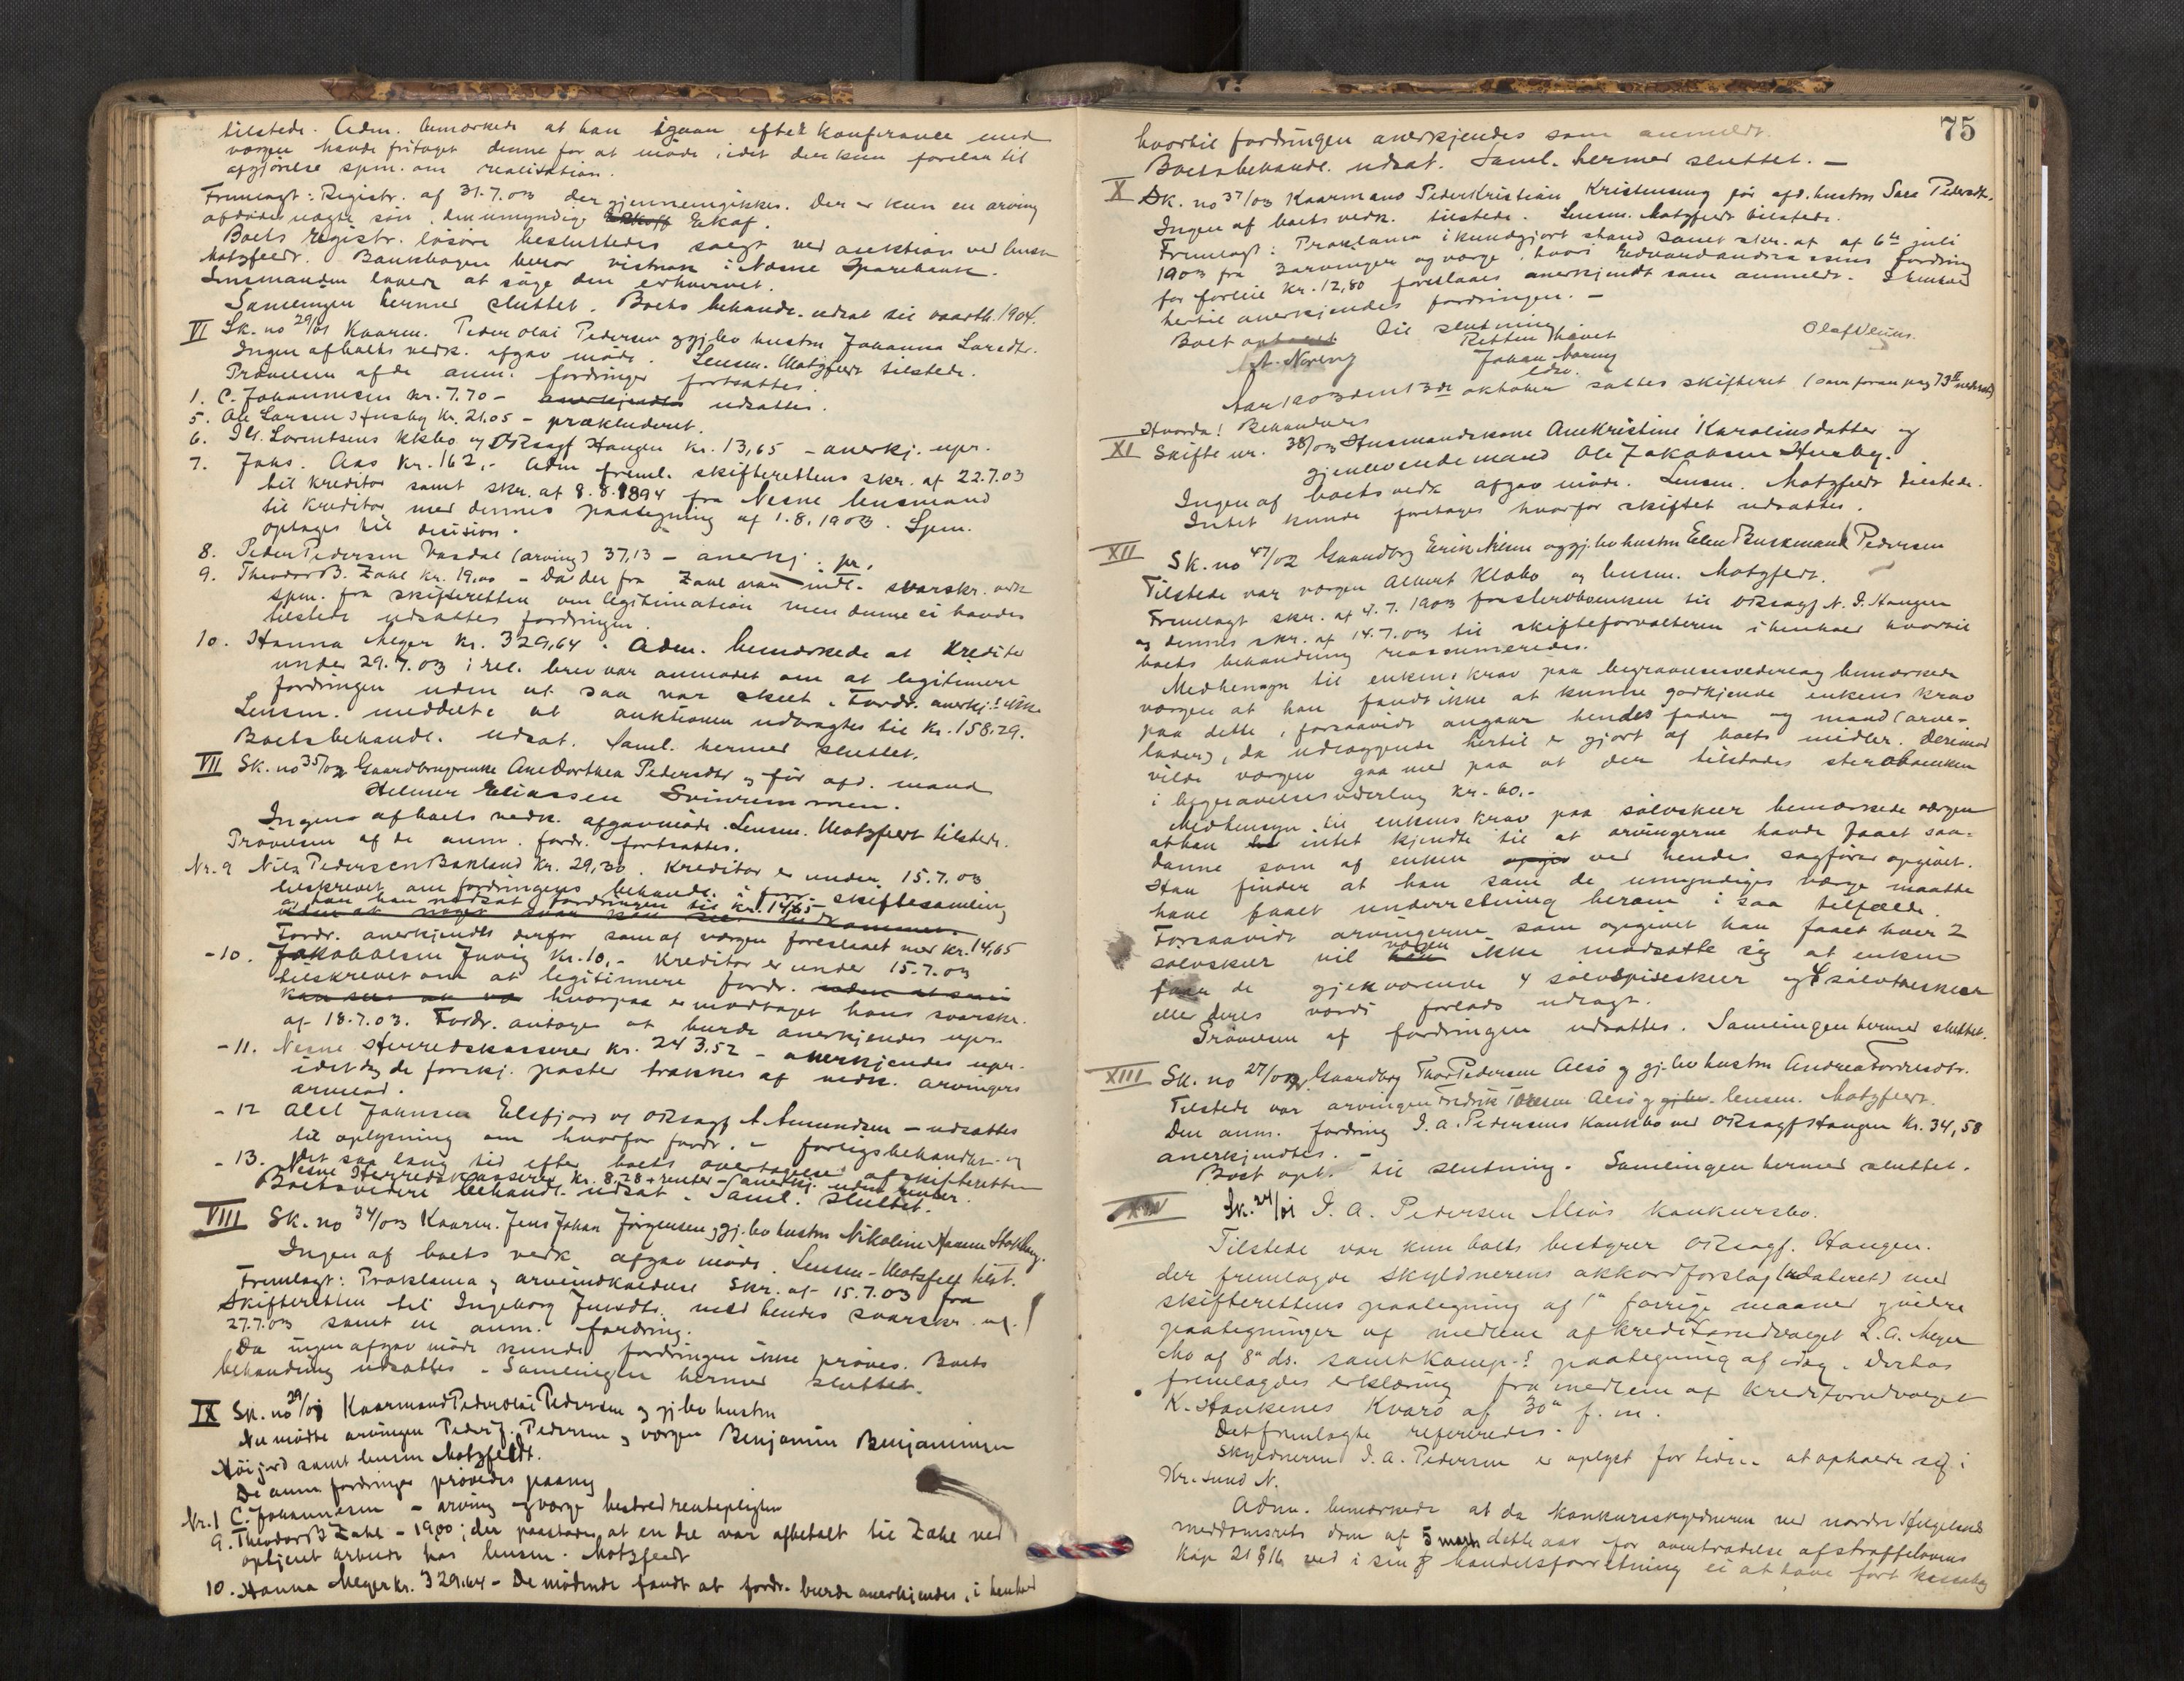 tilstede. Adm. bemærkede at han igaar efter konferance med
værgen havde fritaget denne for at møde, idet der kun forelaa til
afgjørelse spm. om realisation.
Fremlagt: Registr. af 31.7.03 der gjennemgikkes. Der er kun en arving
afdødes uægte søn, den umyndige Eskaf.
Boets registr. løsøre besluttedes solgt ved auktion ved lensm
Motzfeldt. Bankbogen beror vistnok i Nesne Sparebank.
Lensmanden lovede at søge den erhvervet.
Samlingen hermed sluttet. Boets behandl. udsat til vaarth. 1904.
VI Sk. no 29/01 Kaarm. Peder Olai Pedersen og gj.lev hustru Johanna Larsdtr.
Ingen af boets vedk. afgav møde. Lensm. Motzfeldt tilstede.
Prøvelsen af de anm. fordringer fortsattes.
1. C. Johannesen kr. 7.70 - udsattes.
5. Ole Larsen Husby kr. 21.05 - prækluderet.
6. Ill. Lorentsens kkbo og ORsagf Haugen kr. 13,65 - anerkj. upr.
7. Johs. Aas kr. 162,- Adm freml. skifterettens skr. af 22.7.03
til kreditor samt skr. af 8.8.1894 fra Nesne lensmand
til kreditor med dennes paategning af 1.8.1903. Spm.
optages til decision.
8. Peder Pedersen Vasdal (arving) 37,13 - anerkj. pr.
9. Theodor B. Zahl kr. 19.00 - Da der fra Zahl var indl. svarskr. vedk
spm. fra skifteretten om legitimation men denne ei havdes
tilstede udsattes fordringen.
10. Hanna Meyer kr. 329,64. Adm. bemærkede at kreditor
under 29.7.03 i rek. brev var anmodet om at legitimere
fordringen uden at saa var skeet. Fordr. anerkj. ikke
Lensm. meddelte at auktionen udbragtes til kr. 158.29.
Boets behandl. udsat. Saml. hermed sluttet.
VII Sk. no 35/02 Gaardbrugerenke Ane Dorthea Pedersdtr og før afd. mand
Helmer Eliassen Svinrummen.
Ingen af boets vedk. afgav møde. Lensm. Motzfeldt tilstede.
Prøvelsen af de anm. fordr. fortsattes.
Nr. 9 Nils Pedersen Bakland kr. 29,30. Kreditor er under 15.7.03
tilskrevet om fordringens behandl. i forr. skiftesamling
og han har nedsat fordringen til kr. 14,65
Fordr. anerkjendtes derfor som af værgen foreslaaet med kr. 14,65
- 10. Jakob Olsen Juvig kr. 10,- Kreditor er under 15.7.03
tilskrevet om at legitimere fordr.
hvorpaa er modtaget hans svarskr.
af 18.7.03. Fordr. antoges at burde anerkjendes upr.
- 11. Nesne Herredskasserer kr. 243.52 - anerkjendes upr.
idet dog de forskj. poster trækkes af vedk. arvingers
arvelod.
- 12 Alet Johnsen Elsfjord og ORsagf A Amundsen - udsattes
til oplysning om hvorfor fordr. er forligsbehandlet og
det saa lang tid efter boets overtagelse af skifteretten
- 13. Nesne Herredskasserer kr. 8.28 + renter - anerkj. uden renter.
Boets videre behandl. udsat. Saml. sluttet.
VIII Sk. no 34/03 Kaarm. Jens Johan Jørgensen og gj.lev hustru Nikoline Hansen Stokberg.
Ingen af boets vedk afgav møde. Lensm. Motzfeldt tilst.
Fremlagt: Proklama og arveindkaldelse Skr. af 15.7.03 fra
Skifteretten til Ingeborg Jensdtr. med hendes svarskr. af
27.7.03 samt en anm. fordring.
Da ingen afgav møde kunde fordringen ikke prøves. Boets
behandling udsattes. Samlingen hermed sluttet.
IX Sk. no 29/01 Kaarmand Peder Olai Pedersen og gj.lev hustru
Nu mødte arvingen Peder J. Pedersen og værgen Benjamin Benjaminsen
Høijord samt lensm Motzfeldt.
De anm fordringer prøvedes paany
Nr. 1 C. Johannesen - arving og værge bestred rentepligten
9. Theodor B Zahl - 19,00; der paastodes at en del var afbetalt til Zahl ved
optjent arbeide hos lensm. Motzfeldt
10. Hanna Meyer kr. 329.64 - De mødende fandt at fordr. burde anerkjendes, i henhold
75
hvortil fordringen anerkjendes som anmeldt.
Boets behandl. udsat. Saml. hermed sluttet. -
X Sk. no 37/03 Kaarmand Peder Kristian Kristensen og før afd. hustru Sara Pedersdtr.
Ingen af boets vedk. tilstede. Lensm. Motzfeldt tilstede.
Fremlagt: Proklama i kundgjort stand samt skr. af 6te juli
1903 fra 3 arvinger og værge, hvori Edvard Andreassens fordring
for forleie kr. 12,80 foreslaaes anerkjendt som anmeldt. I henhold
hertil anerkjendes fordringen. -
Boet til slutning
Retten hævet
A. Noreng
Johan Noreng
Olaf Olsens.
Aar 1903 den 13de oktober sattes skifteret (som foran pag 73 nedsat)
Hvorda! Behandledes
XI Skifte nr. 38/03 Husmandskone Anekristine Karolinsdatter og
gjenlevende mand Ole Jakobsen Husby.
Ingen af boets vedk afgav møde. Lensm. Motzfeldt tilstede.
Intet kunde foretages hvorfor skiftet udsattes.
XII Sk. no 47/02 Gaardbrg Erik Nilsen og gj.lev hustru Elen Buskmand Pedersen
Tilstede var værgen Albert Klobo og lensm. Motzfeldt.
Fremlagt skr. af 4.7.1903 fra sterboenken til ORsagf N. I. Haugen
og dennes skr. af 14.7.03 til skifteforvalteren i henhold hvortil
boets behandling reassumeredes.
Med hensyn til enkens krav paa begravelsesvederlag bemærkede
værgen at han fandt ikke at kunne godkjende enkens krav
paa dette, forsaavidt angaar hendes fader og mand (arve-
lader), da udlæggende hertil er gjort af boets midler. Derimod
vilde værgen gaa med paa at der tilstodes sterboenken
i begravelsesvederlag kr. 60.-
Med hensyn til enkens krav paa sølvskeer bemærkede værgen
at han intet kjendte til at arvingerne havde faaet saa-
danne som af enken ved hendes sagfører opgivet.
Han finder at han som de umyndiges værge maatte
have faaet underretning herom i saa tilfælde.
Forsaavidt arvingerne som opgivet har faaet hver 2
sølvskeer vil værgen ikke modsætte sig at enken
faar de gjenværende 4 sølvspiseskeer og 4 sølvtheskeer
eller deres værdi forlods udlagt.
Prøvelsen af fordringen udsattes. Samlingen hermed sluttet.
XIII Sk. no 27/02 Gaardbrg Thor Pedersen Alsø og gj.lev hustru Andrea Tordersdtr.
Tilstede var arvingen Fredrik Thorsen Alsø og lensm. Motzfeldt.
Den anm. fordring I. A. Pedersens konkbo ved ORsagf Haugen kr. 34,58
anerkjendtes. -
Boet opt. til slutning. Samlingen hermed sluttet.
XIV Sk. 24/01 I. A. Pedersen Alsøs konkursbo.
Tilstede var kun boets bestyrer ORsagf. Haugen.
der fremlagde skyldnerens akkordforslag (udateret) med
skifterettens paategning af 1ste forrige maaned og videre
paategninger af medlem af kreditorudvalget L. A. Meyer
Mo af 8de ds. samt paategning af idag. Derhos
fremlagdes erklæring fra medlem af kreditorudvalget
K. Haukenes Kvarø af 30te f. m.
Det fremlagte refereredes.
Skyldneren I. A. Pedersen er oplyst for tiden at opholde sig i
Kr.sund N.
Adm. bemærkede at da konkursskyldneren ved nordre Helgelands
meddomsrets dom af 5 marts dette aar for overtrædelse af straffelovens
kap 21 § 16 ved i sin handelsforretning ei at have ført kassabog